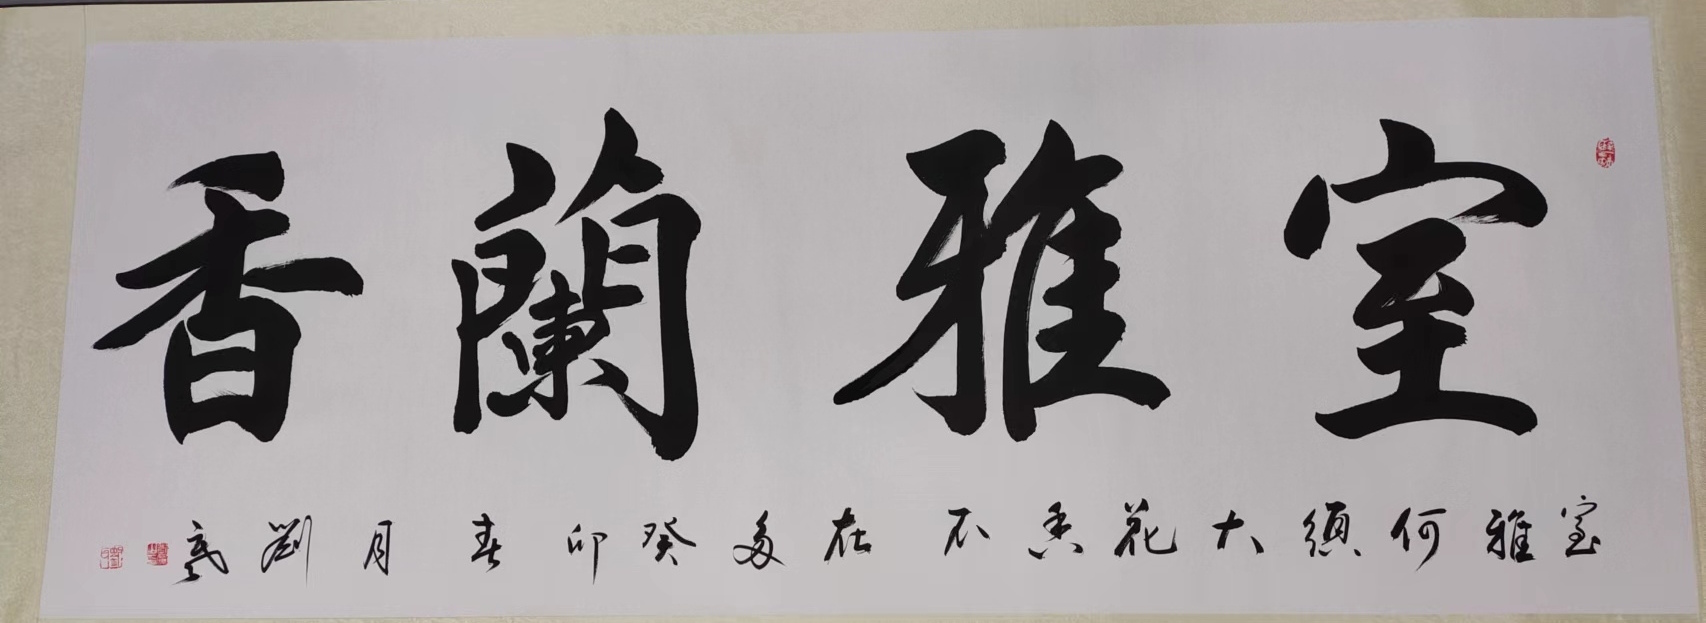 室雅蘭香
室雅何須大花香不在多癸卯春月劉